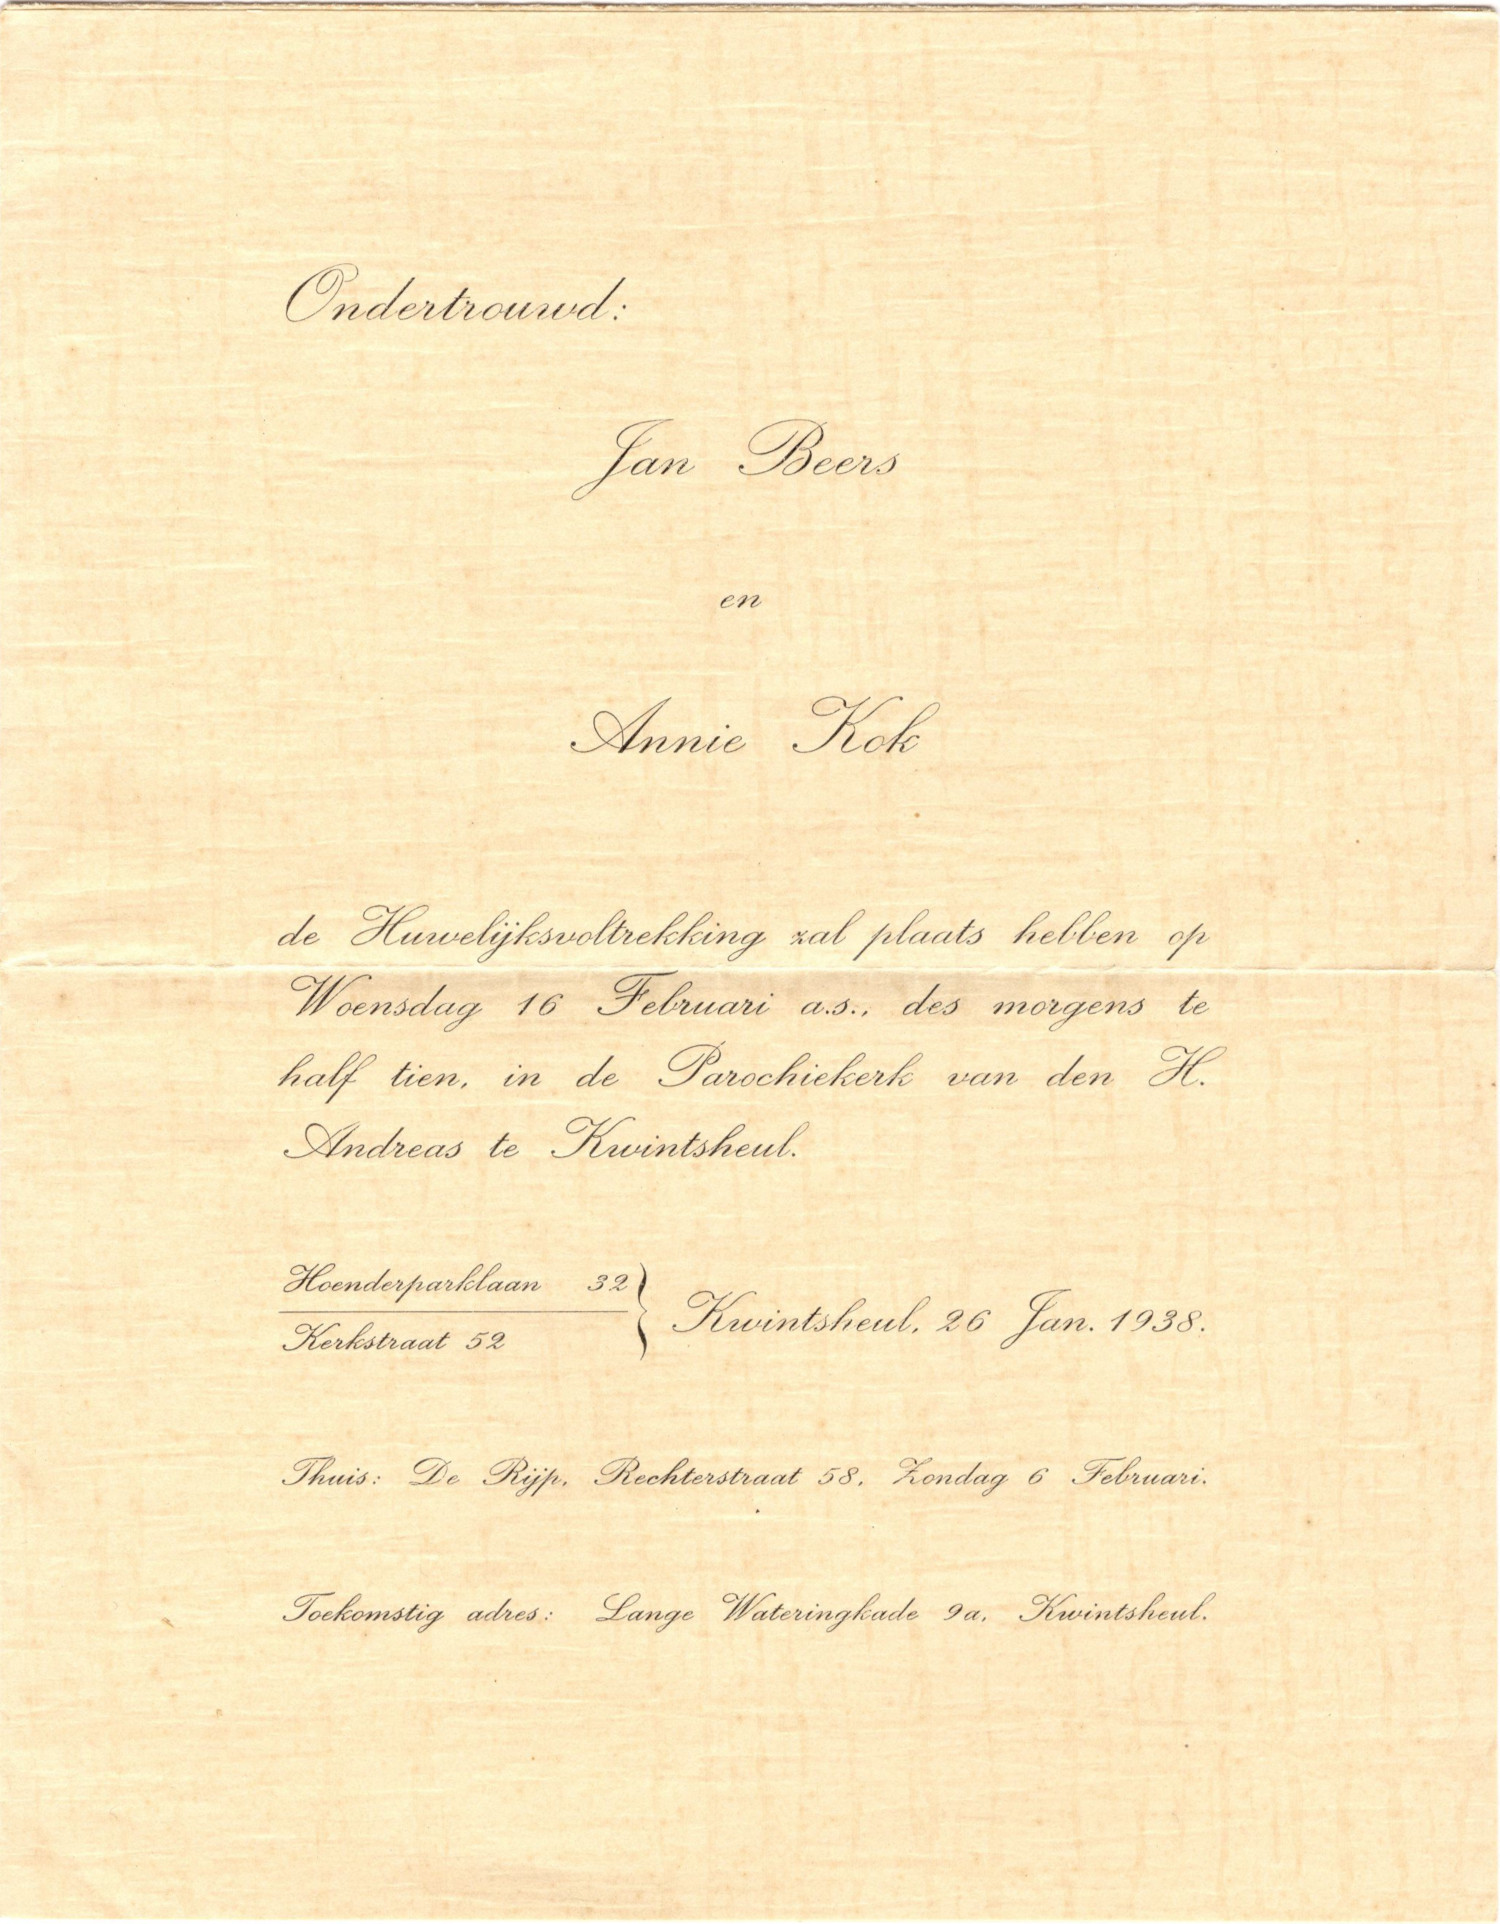 Ondertrouwd:
Jan Beers
en
Annie Kok
de Huwelijksvoltrekking zal plaats hebben op
Woensdag 16 Februari a.s., des morgens te
half tien, in de Parochiekerk van den H.
Andreas te Kwintsheul.
Hoenderparklaan 32
Kerkstraat 52
Kwintsheul, 26 Jan. 1938.
Thuis: De Rijp, Rechterstraat 58, Zondag 6 Februari.
Toekomstig adres: Lange Wateringkade 9a, Kwintsheul.